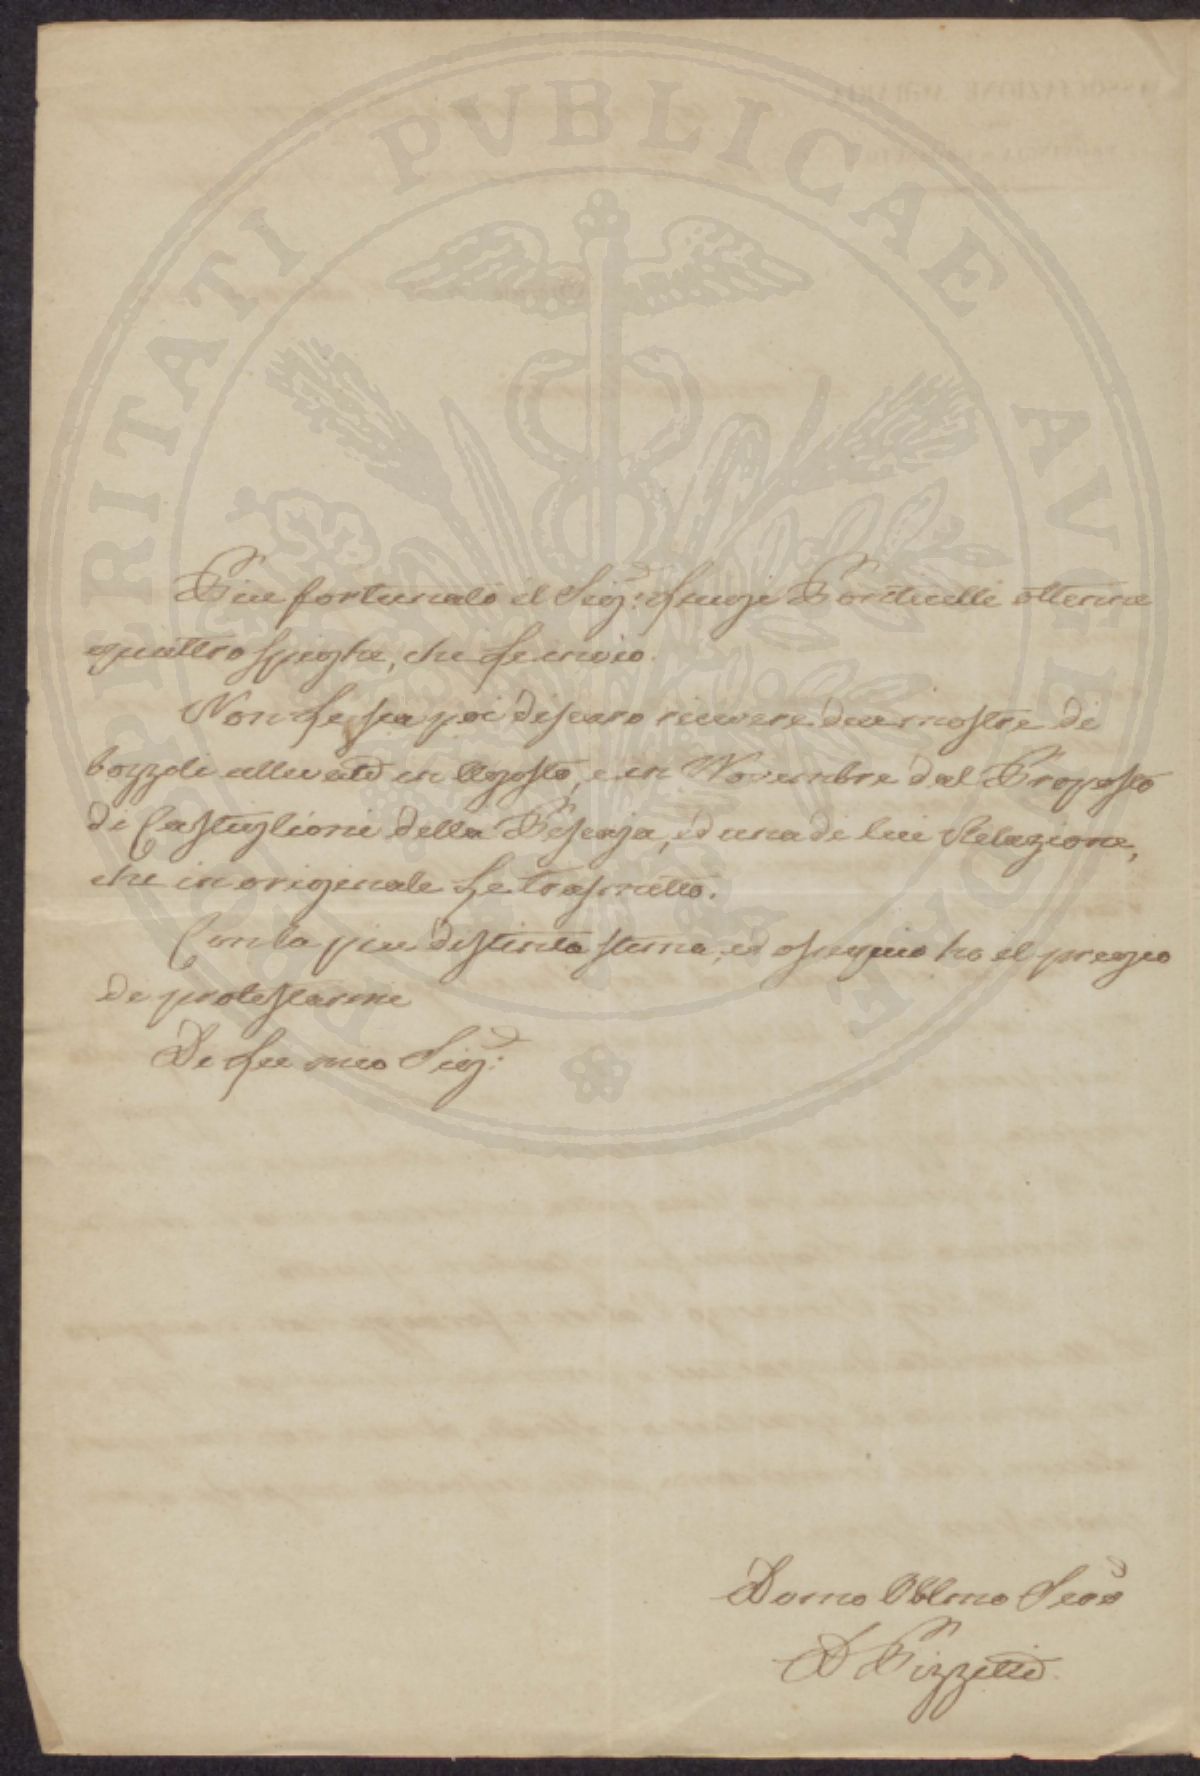 PROSPERITATI PUBLICAE AUGENDAE
Piu fortunato il Sig.r Luigi Ponticelli ottenne
quattro spighe, che Le invio.
Non Le sia poi discaro ricevere due mostre di
bozzoli allevati in Agosto, e in Novembre dal Proposto
di Castiglioni della Pescaja, ed una di lui Relazione,
che in originale Le trasmetto.
Con la piu distinta stima, ed ossequio ho il pregio
di protestarmi
Di Lei mio Sig.r
Devmo Obblmo Serv
D Pizzetti